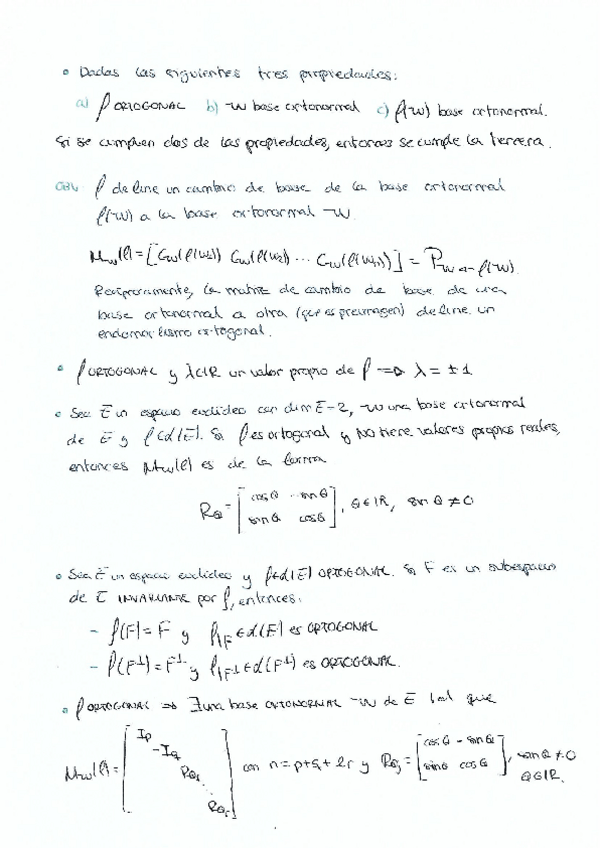 • Dadas las siguientes tres propiedades:
a) f ORTOGONAL b) w base ortonormal c) f(w) base ortonormal.
Si se cumplen dos de las propiedades, entonces se cumple la tercera.
OBS. f define un cambio de base de la base ortonormal
f(w) a la base ortonormal w.
M_w(f) = [C_w(f(w₁)) C_w(f(w₂)) ... C_w(f(w_n))] = P_{w←f(w)}.
Recíprocamente, la matriz de cambio de base de una
base ortonormal a otra (que es preimagen) define un
endomorfismo ortogonal.
• f ORTOGONAL y λ∈ℝ un valor propio de f ⇒ λ = ±1
• Sea E un espacio euclídeo con dim E = 2, w una base ortonormal
de E y f∈𝓛(E). Si f es ortogonal y NO tiene valores propios reales,
entonces M_w(f) es de la forma
R_θ = [cosθ -senθ
senθ cosθ], θ∈ℝ, senθ ≠ 0
• Sea E un espacio euclídeo y f∈𝓛(E) ORTOGONAL. Si F es un subespacio
de E INVARIANTE por f, entonces:
- f(F) = F y f|_F ∈ 𝓛(F) es ORTOGONAL
- f(F^⊥) = F^⊥ y f|_{F^⊥} ∈ 𝓛(F^⊥) es ORTOGONAL.
• f ORTOGONAL ⇒ ∃ una base ORTONORMAL w de E tal que
M_w(f) = [I_p -I_q R_θ₁ ... R_θr] con n = p+q+2r y R_θj = [cosθ -senθ
senθ cosθ], senθ ≠ 0
θ∈ℝ.